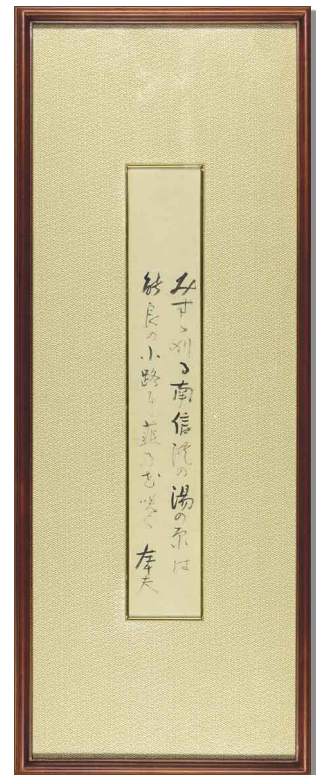 みすゝ刈る南信濃の湯の原は
能良の小路に韮の花咲く 左千夫